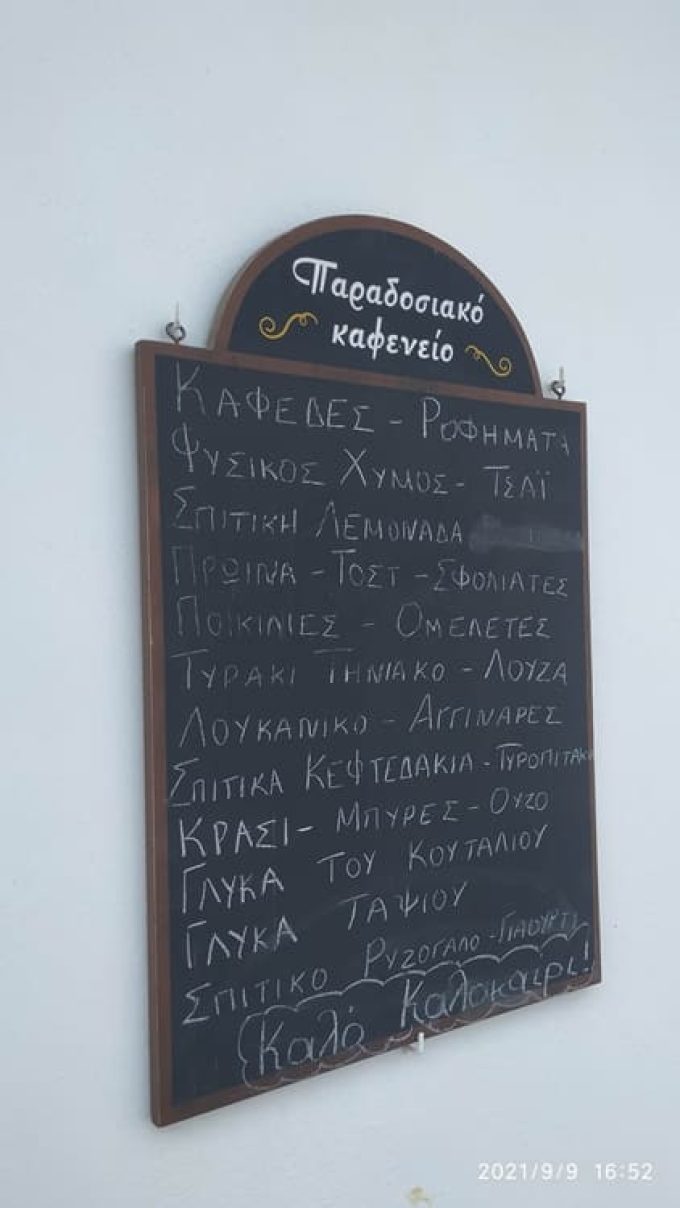 Παραδοσιακό
καφενείο
ΚΑΦΕΔΕΣ - ΡΟΦΗΜΑΤΑ
ΦΥΣΙΚΟΣ ΧΥΜΟΣ - ΤΣΑΪ
ΣΠΙΤΙΚΗ ΛΕΜΟΝΑΔΑ
ΠΡΩΙΝΑ - ΤΟΣΤ - ΣΦΟΛΙΑΤΕΣ
ΠΟΙΚΙΛΙΕΣ - ΟΜΕΛΕΤΕΣ
ΤΥΡΑΚΙ ΤΗΝΙΑΚΟ - ΛΟΥΖΑ
ΛΟΥΚΑΝΙΚΟ - ΑΓΓΙΝΑΡΕΣ
ΣΠΙΤΙΚΑ ΚΕΦΤΕΔΑΚΙΑ - ΤΥΡΟΠΙΤΑΚΙΑ
ΚΡΑΣΙ - ΜΠΥΡΕΣ - ΟΥΖΟ
ΓΛΥΚΑ ΤΟΥ ΚΟΥΤΑΛΙΟΥ
ΓΛΥΚΑ ΤΑΨΙΟΥ
ΣΠΙΤΙΚΟ ΡΥΖΟΓΑΛΟ - ΓΙΑΟΥΡΤΙ
Καλό Καλοκαίρι!
2021/9/9 16:52